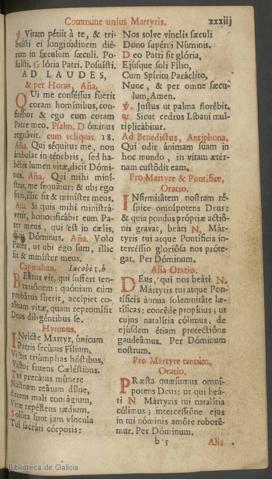 Commune unius Martyris. xxxiij
℣. Vitam pétiit à te, & tri-
buísti ei longitúdinem dié-
rum in sæculum sæculi. Po-
suísti. Glória Patri. Posuísti.
AD LAUDES,
& per Horas, Aña.
QUi me conféssus fúerit
coram homínibus, con-
fitébor & ego eum coram
Patre meo. Psalm. Dóminus
regnávit. cum reliquis. 18.
Aña. Qui séquitur me, non
ámbulat in ténebris, sed ha-
bébit lumen vitæ, dicit Dómi-
nus. Aña. Qui mihi miní-
strat, me sequátur: & ubi ego
sum, illic sit & miníster meus.
Aña. Si quis mihi ministrá-
verit, honorificábit eum Pa-
ter meus, qui est in cælis,
dicit Dóminus. Aña. Volo
Pater, ut ubi ego sum, illic
sit & miníster meus.
Capitulum. Iacobi 1. b
BEátus vir, qui suffert ten-
tatiónem: quóniam cùm
probátus fúerit, accípiet co-
rónam vitæ, quam repromísit
Deus diligéntibus se.
Hymnus.
INvícte Martyr, únicum
Patris secútus Fílium,
Victis triúmphas hóstibus,
Victor fruens Cæléstibus.
Tui precátus múnere
Nostrum reátum dílue,
Arcens mali contágium,
Vitæ repéllens tædium.
Solúta sunt jam víncula
Tui sacráti córporis:
Nos solve vínclis sæculi
Dono supérni Núminis.
Deo Patri sit glória,
Ejúsque soli Fílio,
Cum Spíritu Paráclito,
Nunc, & per omne sæcu-
lum, Amen.
℣. Justus ut palma florébit.
℟. Sicut cedrus Líbani mul-
tiplicábitur.
Ad Benedictus, Antiphona.
Qui odit ánimam suam in
hoc mundo, in vitam ætér-
nam custódit eam.
Pro Martyre & Pontifice,
Oratio.
INfirmitátem nostram ré-
spice omnípotens Deus:
& quia pondus própriæ actió-
nis gravat, beáti N. Már-
tyris tui atque Pontíficis in-
tercéssio gloriósa nos próte-
gat. Per Dóminum.
Alia Oratio.
DEus, qui nos beáti N.
Mártyris tui atque Pon-
tíficis ánnua solemnitáte læ-
tíficas; concéde propítius; ut
cujus natalítia cólimus, de
ejúsdem étiam protectióne
gaudeámus. Per Dóminum
nostrum.
Pro Martyre tantum,
Oratio.
PRæsta quæsumus omní-
potens Deus: ut qui beá-
ti N. Mártyris tui natalítia
cólimus; intercessióne ejus
in tui nóminis amóre roboré-
mur. Per Dóminum.
b 5 Alia
Biblioteca de Galicia